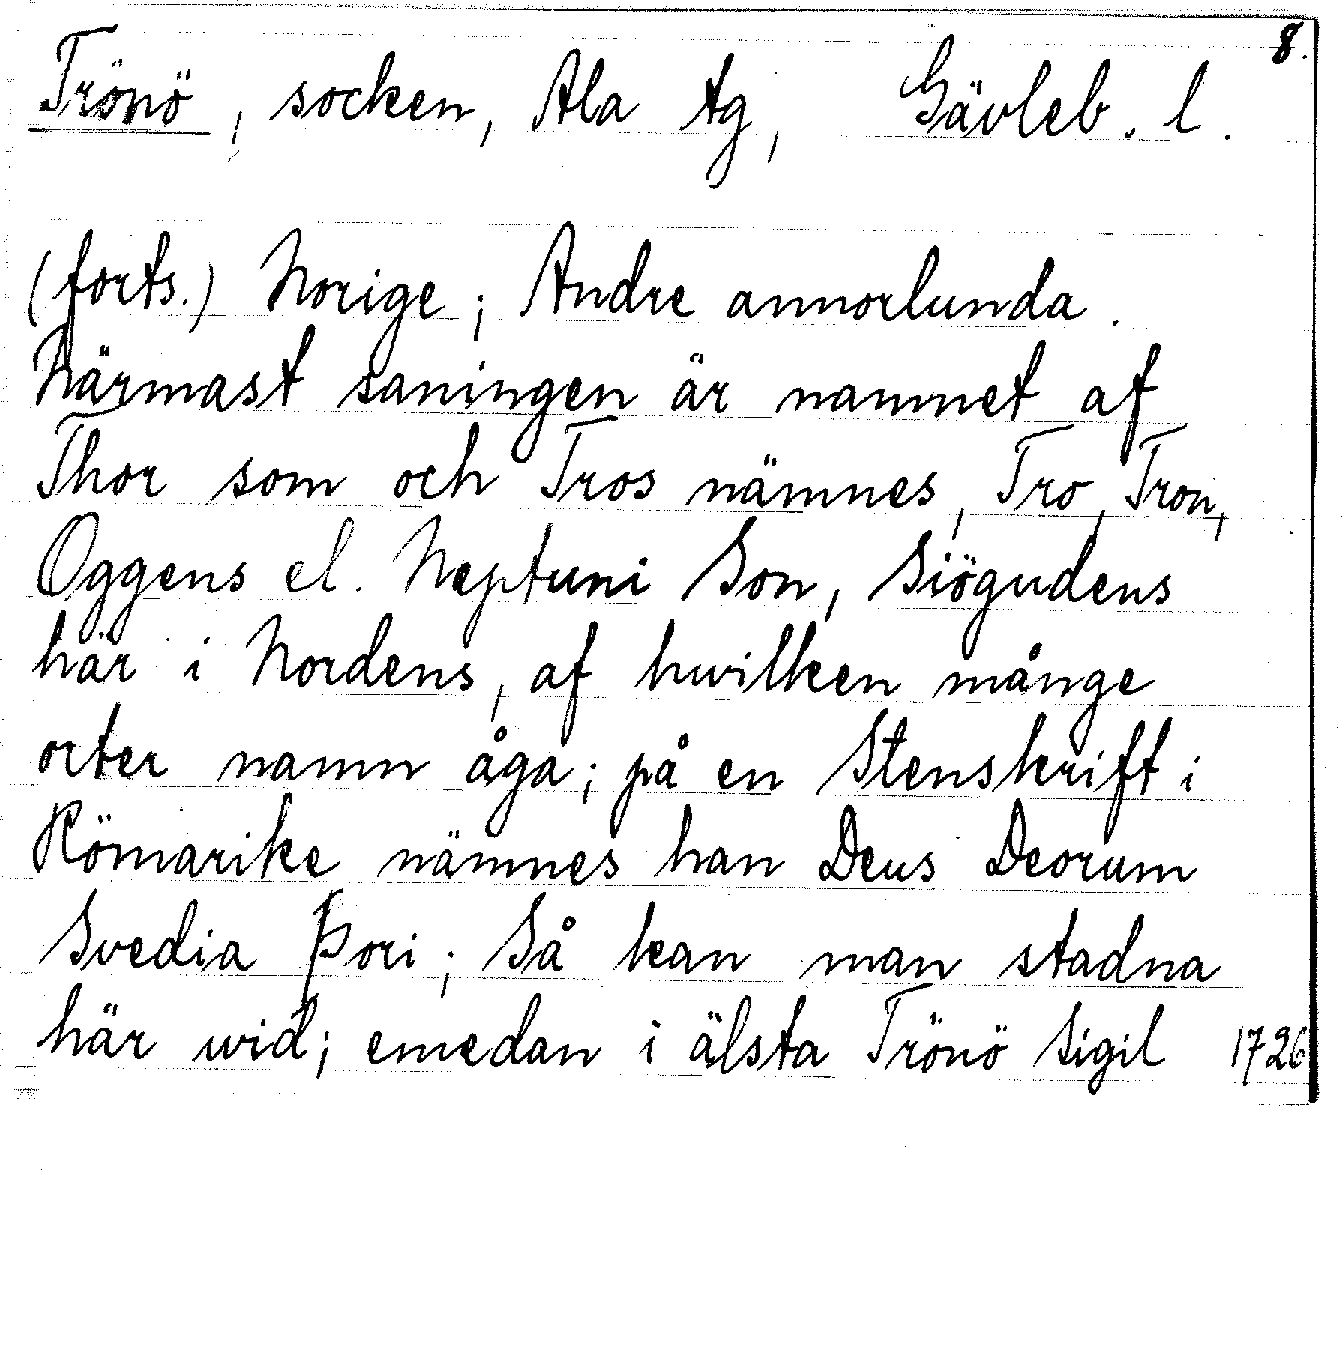 8.
Trönö, socken, Ala tg, Gävleb. l.
(forts.) Norige; Andre annorlunda.
Närmast saningen är namnet af
Thor som och Tros nämnes, Tro, Tron,
Oggens el. Neptuni Son, Siögudens
här i Nordens, af hwilken månge
orter namn åga; på en Stenskrift i
Römarike nämnes han Deus Deorum
Svedia Þori; Så kan man stadna
här wid; emedan i älsta Trönö Sigil 1726